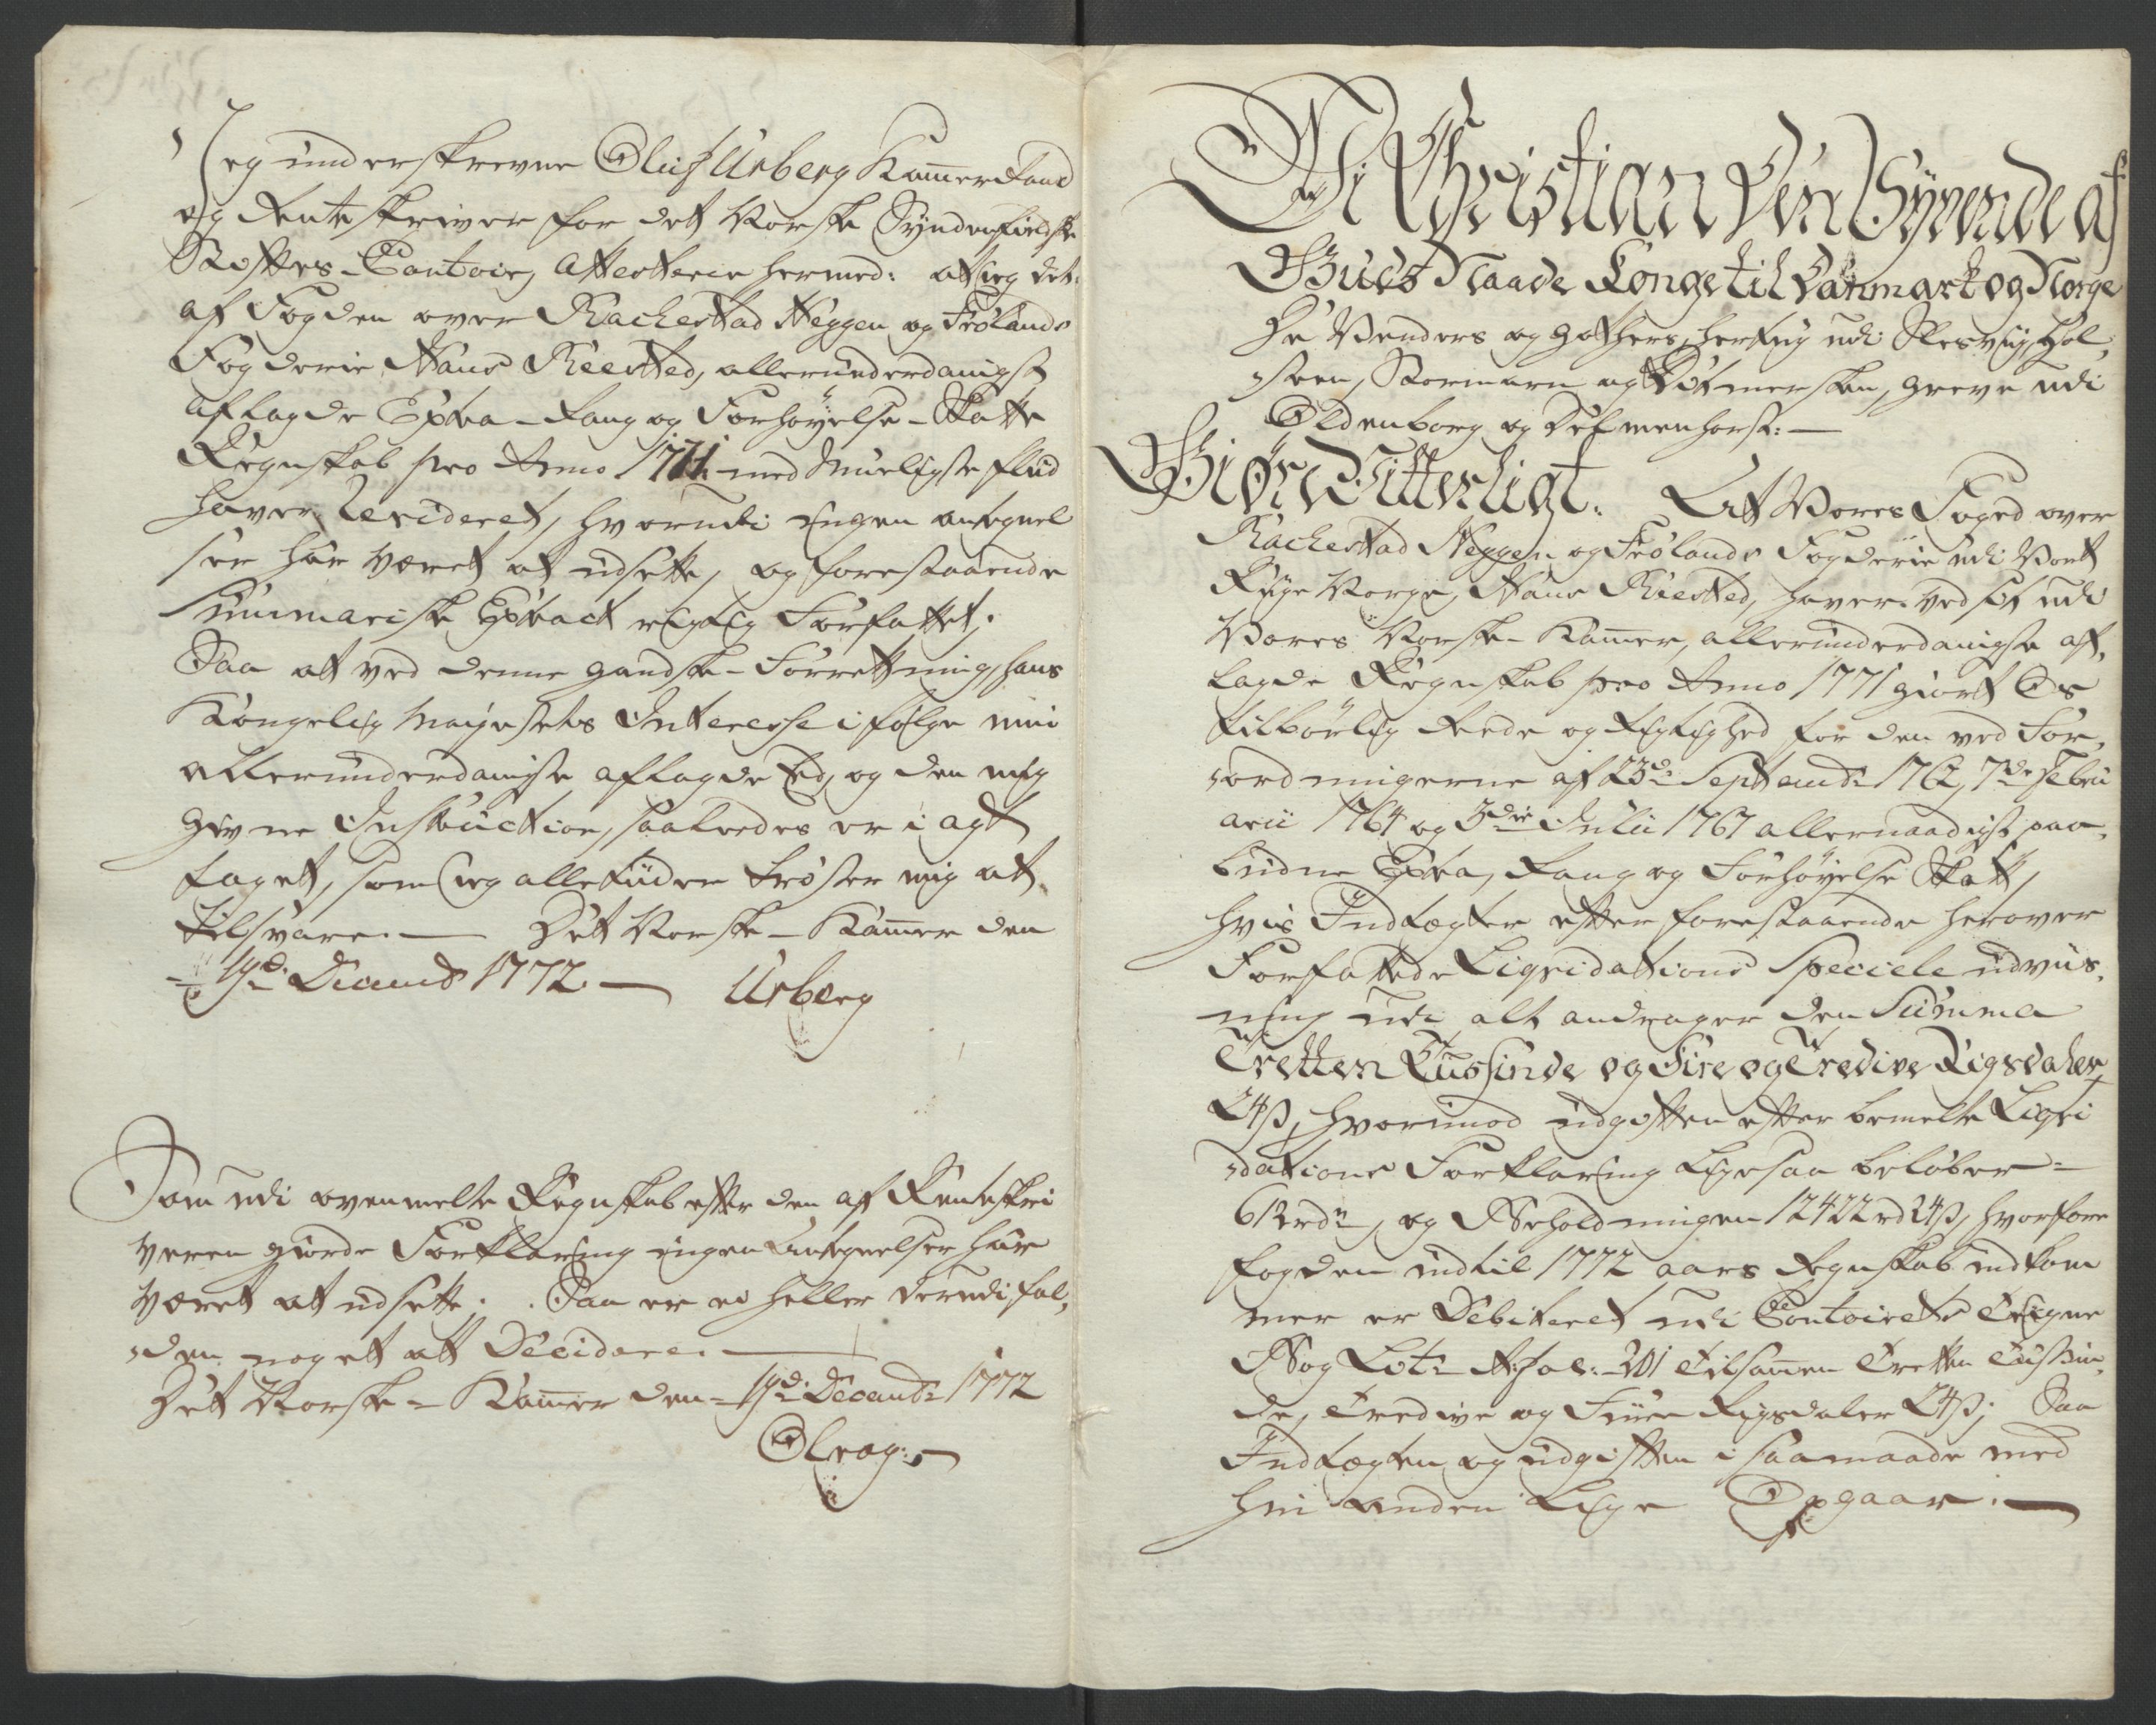 Jeg underskrevne Oluf Urberg Kammerraad
og Renteskriver for det Norske Syndenfieldske
Stifters Contoir, Attesterer hermed: at jeg det
af Fogden over Rachestad Heggen og Frølands
Fogderie Hans Riersted, allerunderdanigst
aflagde Extra- Rang og Forhøyelse- Skatte
Regnskab pro Anno 1771 med Mueligste fliid
haver Revideret, hvorudi ingen antegnel
ser har været at udsette, og forestaaende
Summariske Extract rigtig Forfattet;
Saa at ved denne gandske Forrettning, hans
Kongelig Mayestets Interesse i følge min
allerunderdanigste aflagde Eed, og den mig
givne Instruction, saaledes er i agt
taget, som jeg alle tiider trøster mig at
tilsvare. — Det Norske- Kammer den
19de Decemb 1772. — Urberg
Som udi ovenmelte Regnskab efter den af Renteskri
veren giorde Forklaring ingen Antegnelser har
været at udsette; Saa er ei heller derudi fal,
den noget at Decidere. —
Det Norske- Kammer den 19de Decembr 1772
Vi Christian Den Syvende af
Guds Naade Konge til Danmark og Norge
De Venders og Gothers, hertug udi Slesvig, Hol,
steen, Stormarn og Ditmersken, greve udi
Oldenborg og Delmenhorst: —
Giør Vitterligt: At Vores Foged over
Rachestad Heggen og Frølands Fogderie udi Vort
Riige Norge, Hans Riersted, haver ved sit udi
Vores Norske- Kammer, allerunderdanigst af,
lagde Regnskab pro Anno 1771 giort Os
tilbørlig Rede og Rigtighed for den ved For,
ordningerne af 23de Septembr 1762, 7de Febru
arii 1764 og 3die Julii 1767 allernaadigst paa,
budne Extra, Rang og Forhøyelse Skatt,
hvis Indtægter efter forestaaende herover
Forfattede Liqvidations Speciele udviis,
ning udi alt andrager den Summa
Tretten Tussinde og Fire og Tredive Rigsdaler
24 ß, hvorimod udgiften efter bemelte Liqvi
dations Forklaring ligesaa beløber
612 rdr, og Beholdningen 12422 rd 24 ß, hvorfore
fogden indtil 1772 aars Regnskab indkom
mer er Debiteret udi Contoirets Eegne
Bog Litr A: fol: 201 Tilsammen Tretten Tussin,
de, Tredive og Fiire Rigsdaler 24 ß; Saa
Indtægten og udgiften i saamaade med
hin anden lige Opgaar. —